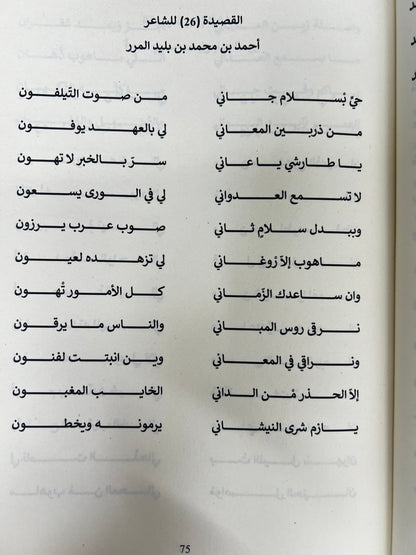 القصيدة (26) للشاعر
أحمد بن محمد بن بليد المرر
حيِّ بْسلام جاني من صوت التَيلفون
من ذربين المعاني لي بالعهد يوفون
يا طارشي يا عاني سرّ بالخبر لا تهون
لا تسمع العدواني لي في الورى يسعون
وببدل سلامٍ ثاني صوب عرب يرزون
ماهوب إلاّ رْوغاني لي تزهده لعيون
وان ساعدك الزّماني كل الأمور تْهون
نرقى روس المباني والناس ما يرقون
ونراقي في المعاني وين انبتت لفنون
إلاّ الحذر مْن الداني الخايب المغبون
يازم شرى النيشاني يرمونه ويخطون
75